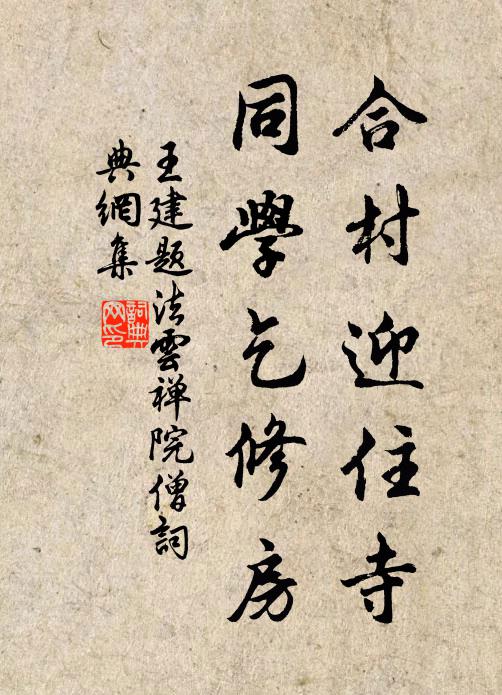 合村迎住寺
同學乞修房
王建題法雲禅院僧詞
典網集
詞典
网印